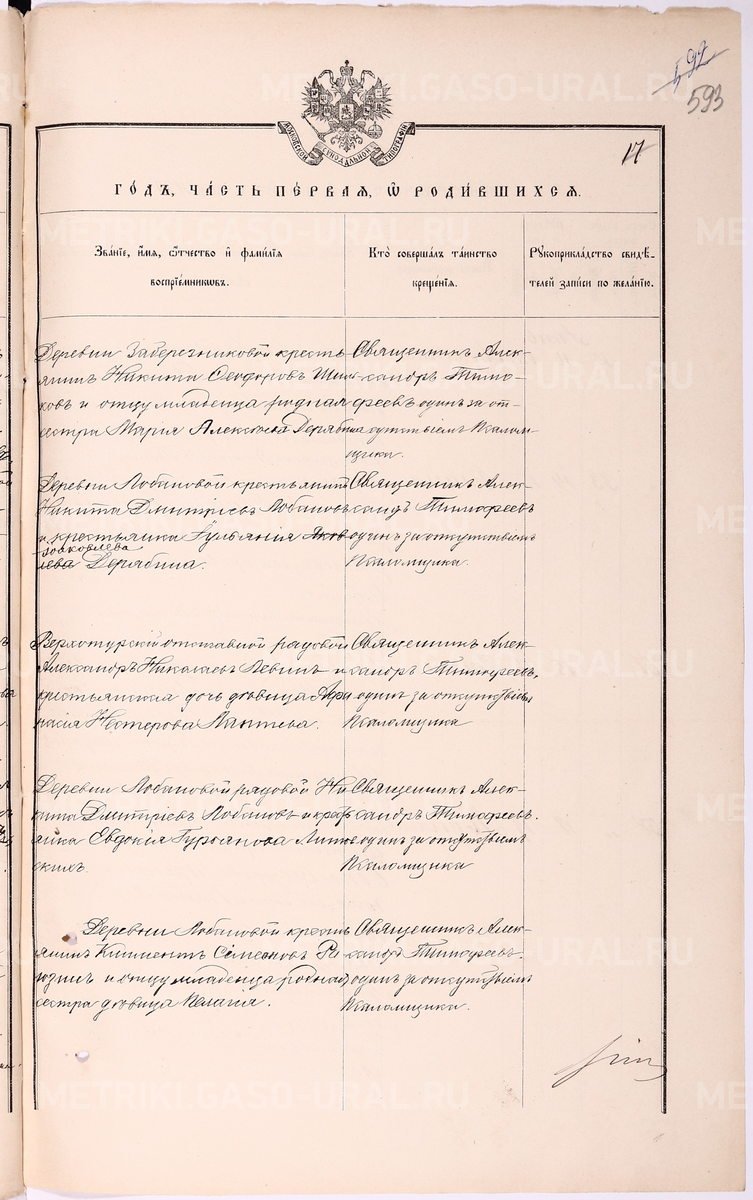 METRIKI.GASO-URAL.RU
592
593
МОСКОВСКОЙ СѴНОДАЛЬНОЙ ТИПОГРАФІИ
17
ГОДЪ, ЧАСТЬ ПЕРВАЯ, Ѡ РОДИВШИХСЯ.
Званіе, имя, отчество и фамилія
воспріемниковъ.
Кто совершалъ таинство
крещенія.
Рукоприкладство свидѣ-
телей записи по желанію.
Деревни Заберезниковой кресть
янинъ Никита Ѳеодоровъ
ковъ и отцу младенца родная
сестра Марія Алексіева Дерябина
Священникъ Алек-
сандръ Тимо-
феевъ одинъ за от-
сутствіемъ Псалом-
щика.
Деревни Лобановой крестьянинъ
Никита Димитріевъ Лобановъ
и крестьянка Іульянія Яков
Іоаковлева
лева Дерябина.
Священникъ Алек-
сандръ Тимофеевъ
одинъ за отсутствіемъ
Псаломщика.
Верхотурскій отставной рядовой
Александръ Николаевъ Левинъ и
крестьянская дочь дѣвица Афа
насія Нестерова Лаптева.
Священникъ Алек-
сандръ Тимофеевъ,
одинъ за отсутствіемъ
Псаломщика
Деревни Лобановой рядовой Ни
кита Дмитріевъ Лобановъ и крест
янка Евдокія
скихъ.
Священникъ Алек-
сандръ Тимофеевъ.
одинъ за отсутствіемъ
Псаломщика
Деревни Лобановой кресть
янинъ Климентъ Семеновъ
и отцу младенца родная
сестра дѣвица Пелагія.
Священникъ Алек-
сандръ Тимофеевъ.
одинъ за отсутствіемъ
Псаломщика.